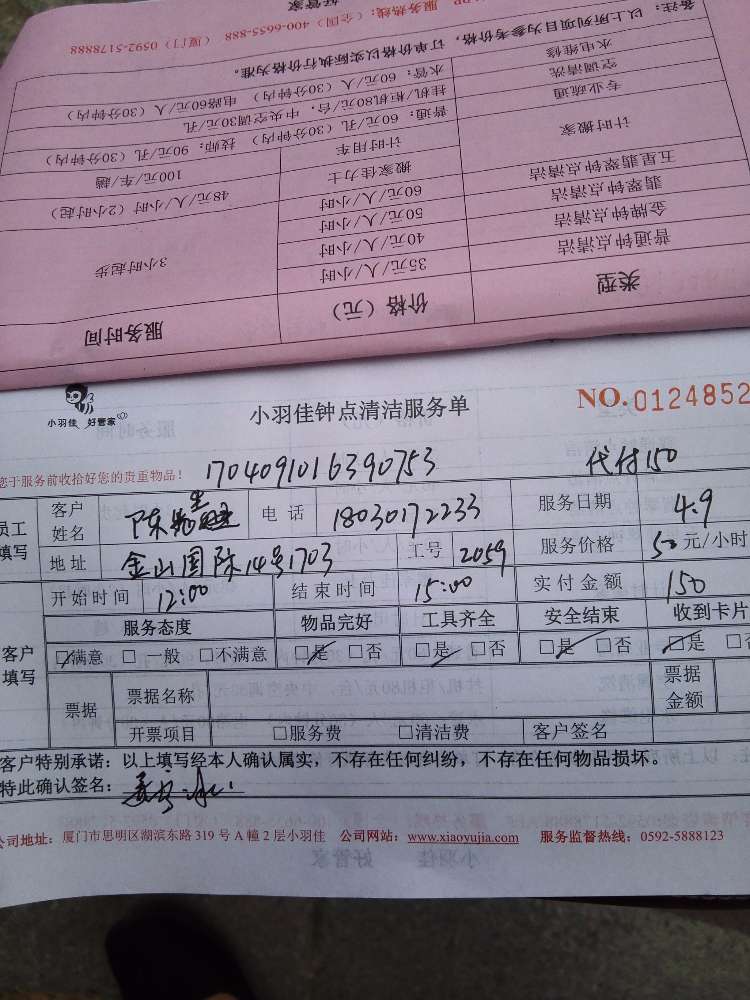 好管家
服务热线：（全国）400-6655-888 （厦门）0592-5178888
备注：以上所列项目为参考价格，订单价格以实际执行价格为准。
水电维修 水管：60元/人（30分钟内） 电路60元/人（30分钟内）
空调清洗 挂机/柜机80元/台，中央空调30元/孔
专业疏通 普通：60元/孔（30分钟内） 技师：90元/孔（30分钟内）
计时搬家 计时用车 100元/车/趟
搬家佳力士 48元/人/小时（2小时起）
五星翡翠钟点清洁 60元/人/小时
翡翠钟点清洁 50元/人/小时
金牌钟点清洁 40元/人/小时
普通钟点清洁 35元/人/小时 3小时起步
类型 价格（元） 服务时间
小羽佳 好管家
小羽佳钟点清洁服务单
NO.0124852
您于服务前收拾好您的贵重物品！ 1704091016390753 代付150
员工填写 客户姓名 陈 电话 18030172233 服务日期 4.9
地址 金山国际14号1703 工号 2059 服务价格 50元/小时
开始时间 12:00 结束时间 15:00 实付金额 150
客户填写 服务态度 物品完好 工具齐全 安全结束 收到卡片
□满意 □一般 □不满意 □是 □否 □是 □否 □是 □否 □是 □
票据 票据名称 票据金额
开票项目 □服务费 □清洁费 客户签名
客户特别承诺：以上填写经本人确认属实，不存在任何纠纷，不存在任何物品损坏。
特此确认签名：
公司地址：厦门市思明区湖滨东路319号A幢2层小羽佳 公司网站：www.xiaoyujia.com 服务监督热线：0592-5888123